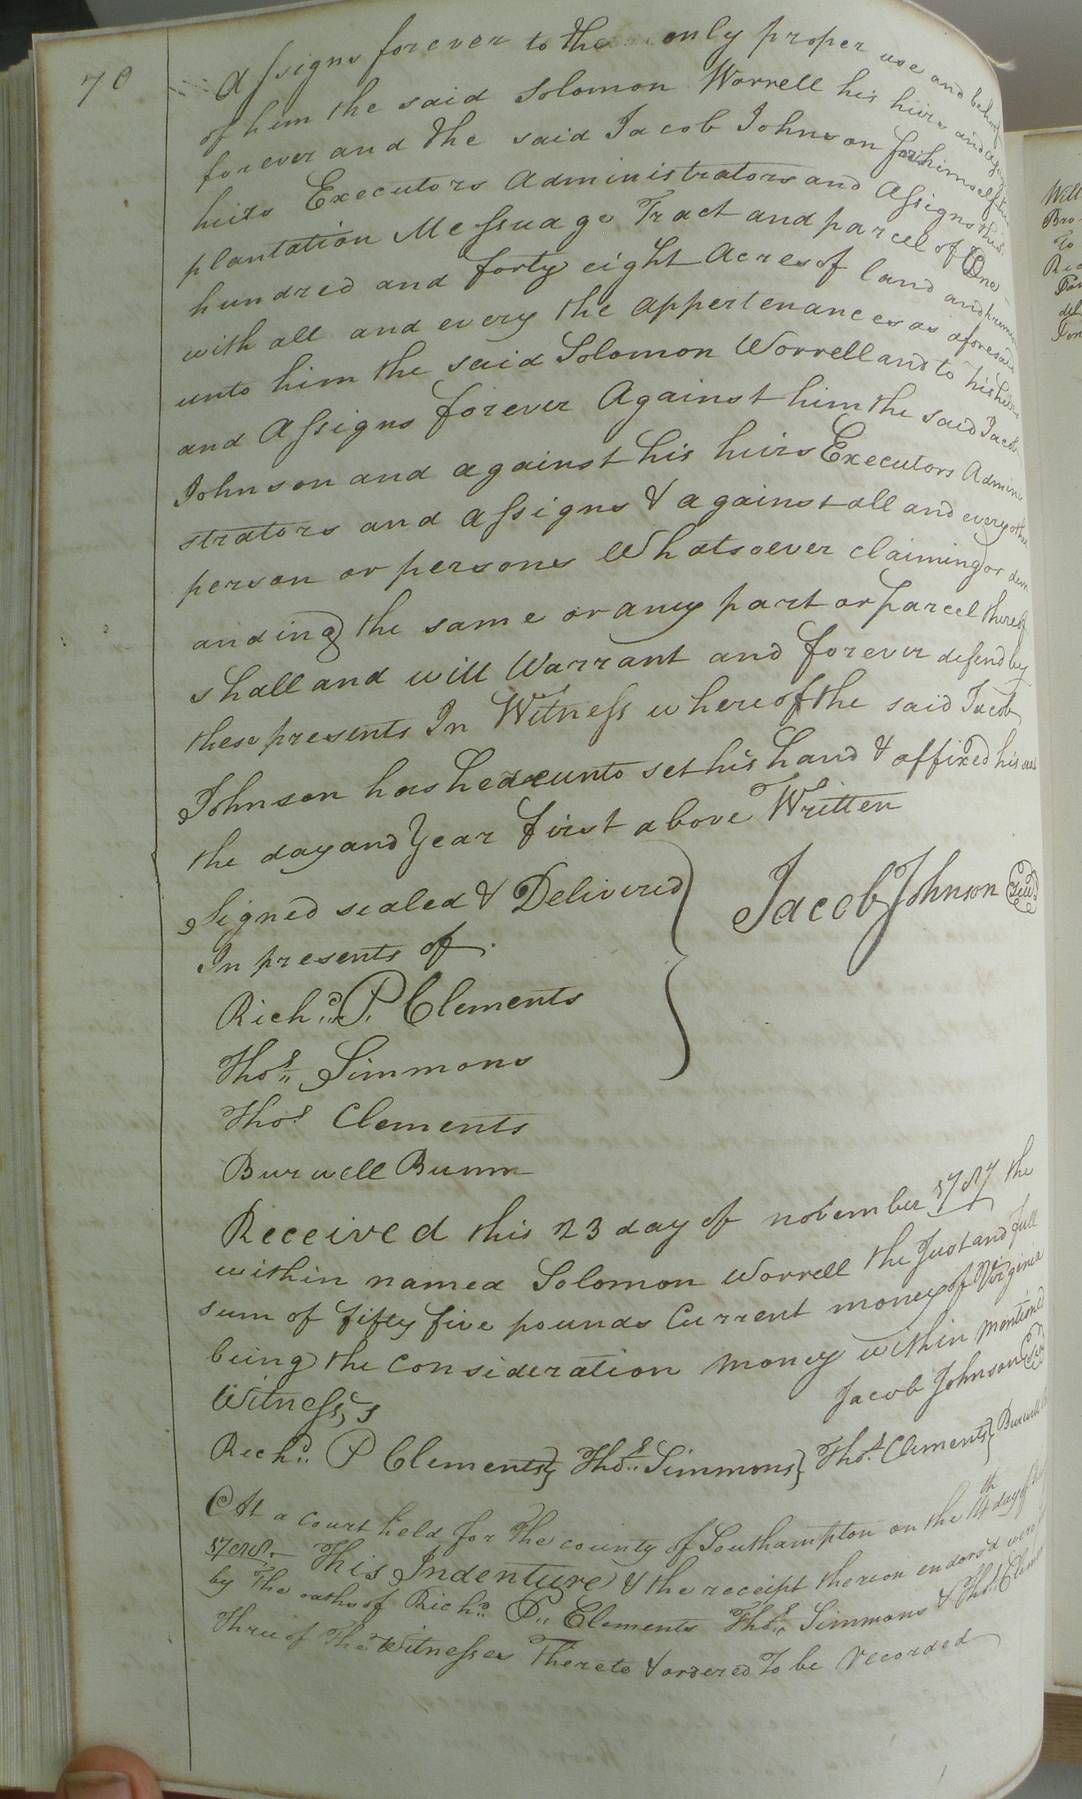 70
Assigns forever to the only proper use and behoof
of him the said Solomon Worrell his hiirs and assigns
forever and the said Jacob Johnson for himself his
heirs Executors Administrators and Assigns this
plantation Messuage Tract and parcel of One
hundred and forty eight Acres of land and
with all and every the appertenances as aforesaid
unto him the said Solomon Worrell and to his heirs
and Assigns forever Against him the said Jacob
Johnson and against his heirs Executors Admini
strators and assigns & against all and every other
person or persons Whatsoever claiming or dem
anding the same or any part or parcel thereof
shall and will Warrant and forever defend by
these presents In Witness whereof the said Jacob
Johnson has hereunto set his hand & affixed his seal
the day and Year first above Written
Signed sealed & Delivered
In presents of
Jacob Johnson Seal
Richd. P. Clements
Thos. Simmons
Thos Clements
Burwell Bunn
Received this 23 day of november 1787 the
within named Solomon Worrell the Just and full
sum of fifty five pounds Current money of Virginia
being the consideration money within mentioned
Witness,s
Jacob Johnson
Richd. P Clements Thos. Simmons Thos. Clements Burwell
At a court held for the county of Southampton on the 14th day of
This Indenture & the receipt thereon endorsd were
by the oaths of Richd. P. Clements Thos. Simmons & Thos. Clements
three of The Witnesses Thereto & ordered To be recorded